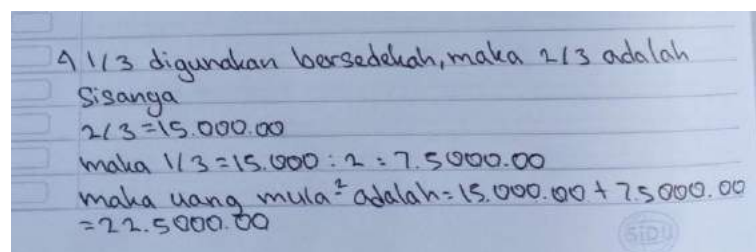 9 1/3 digunakan bersedekah, maka 2/3 adalah
Sisanya
2/3 = 15.000.00
maka 1/3 = 15.000 : 2 = 7.5000.00
maka uang mula² adalah = 15.000.00 + 7.5000.00
= 22.5000.00
SIDU